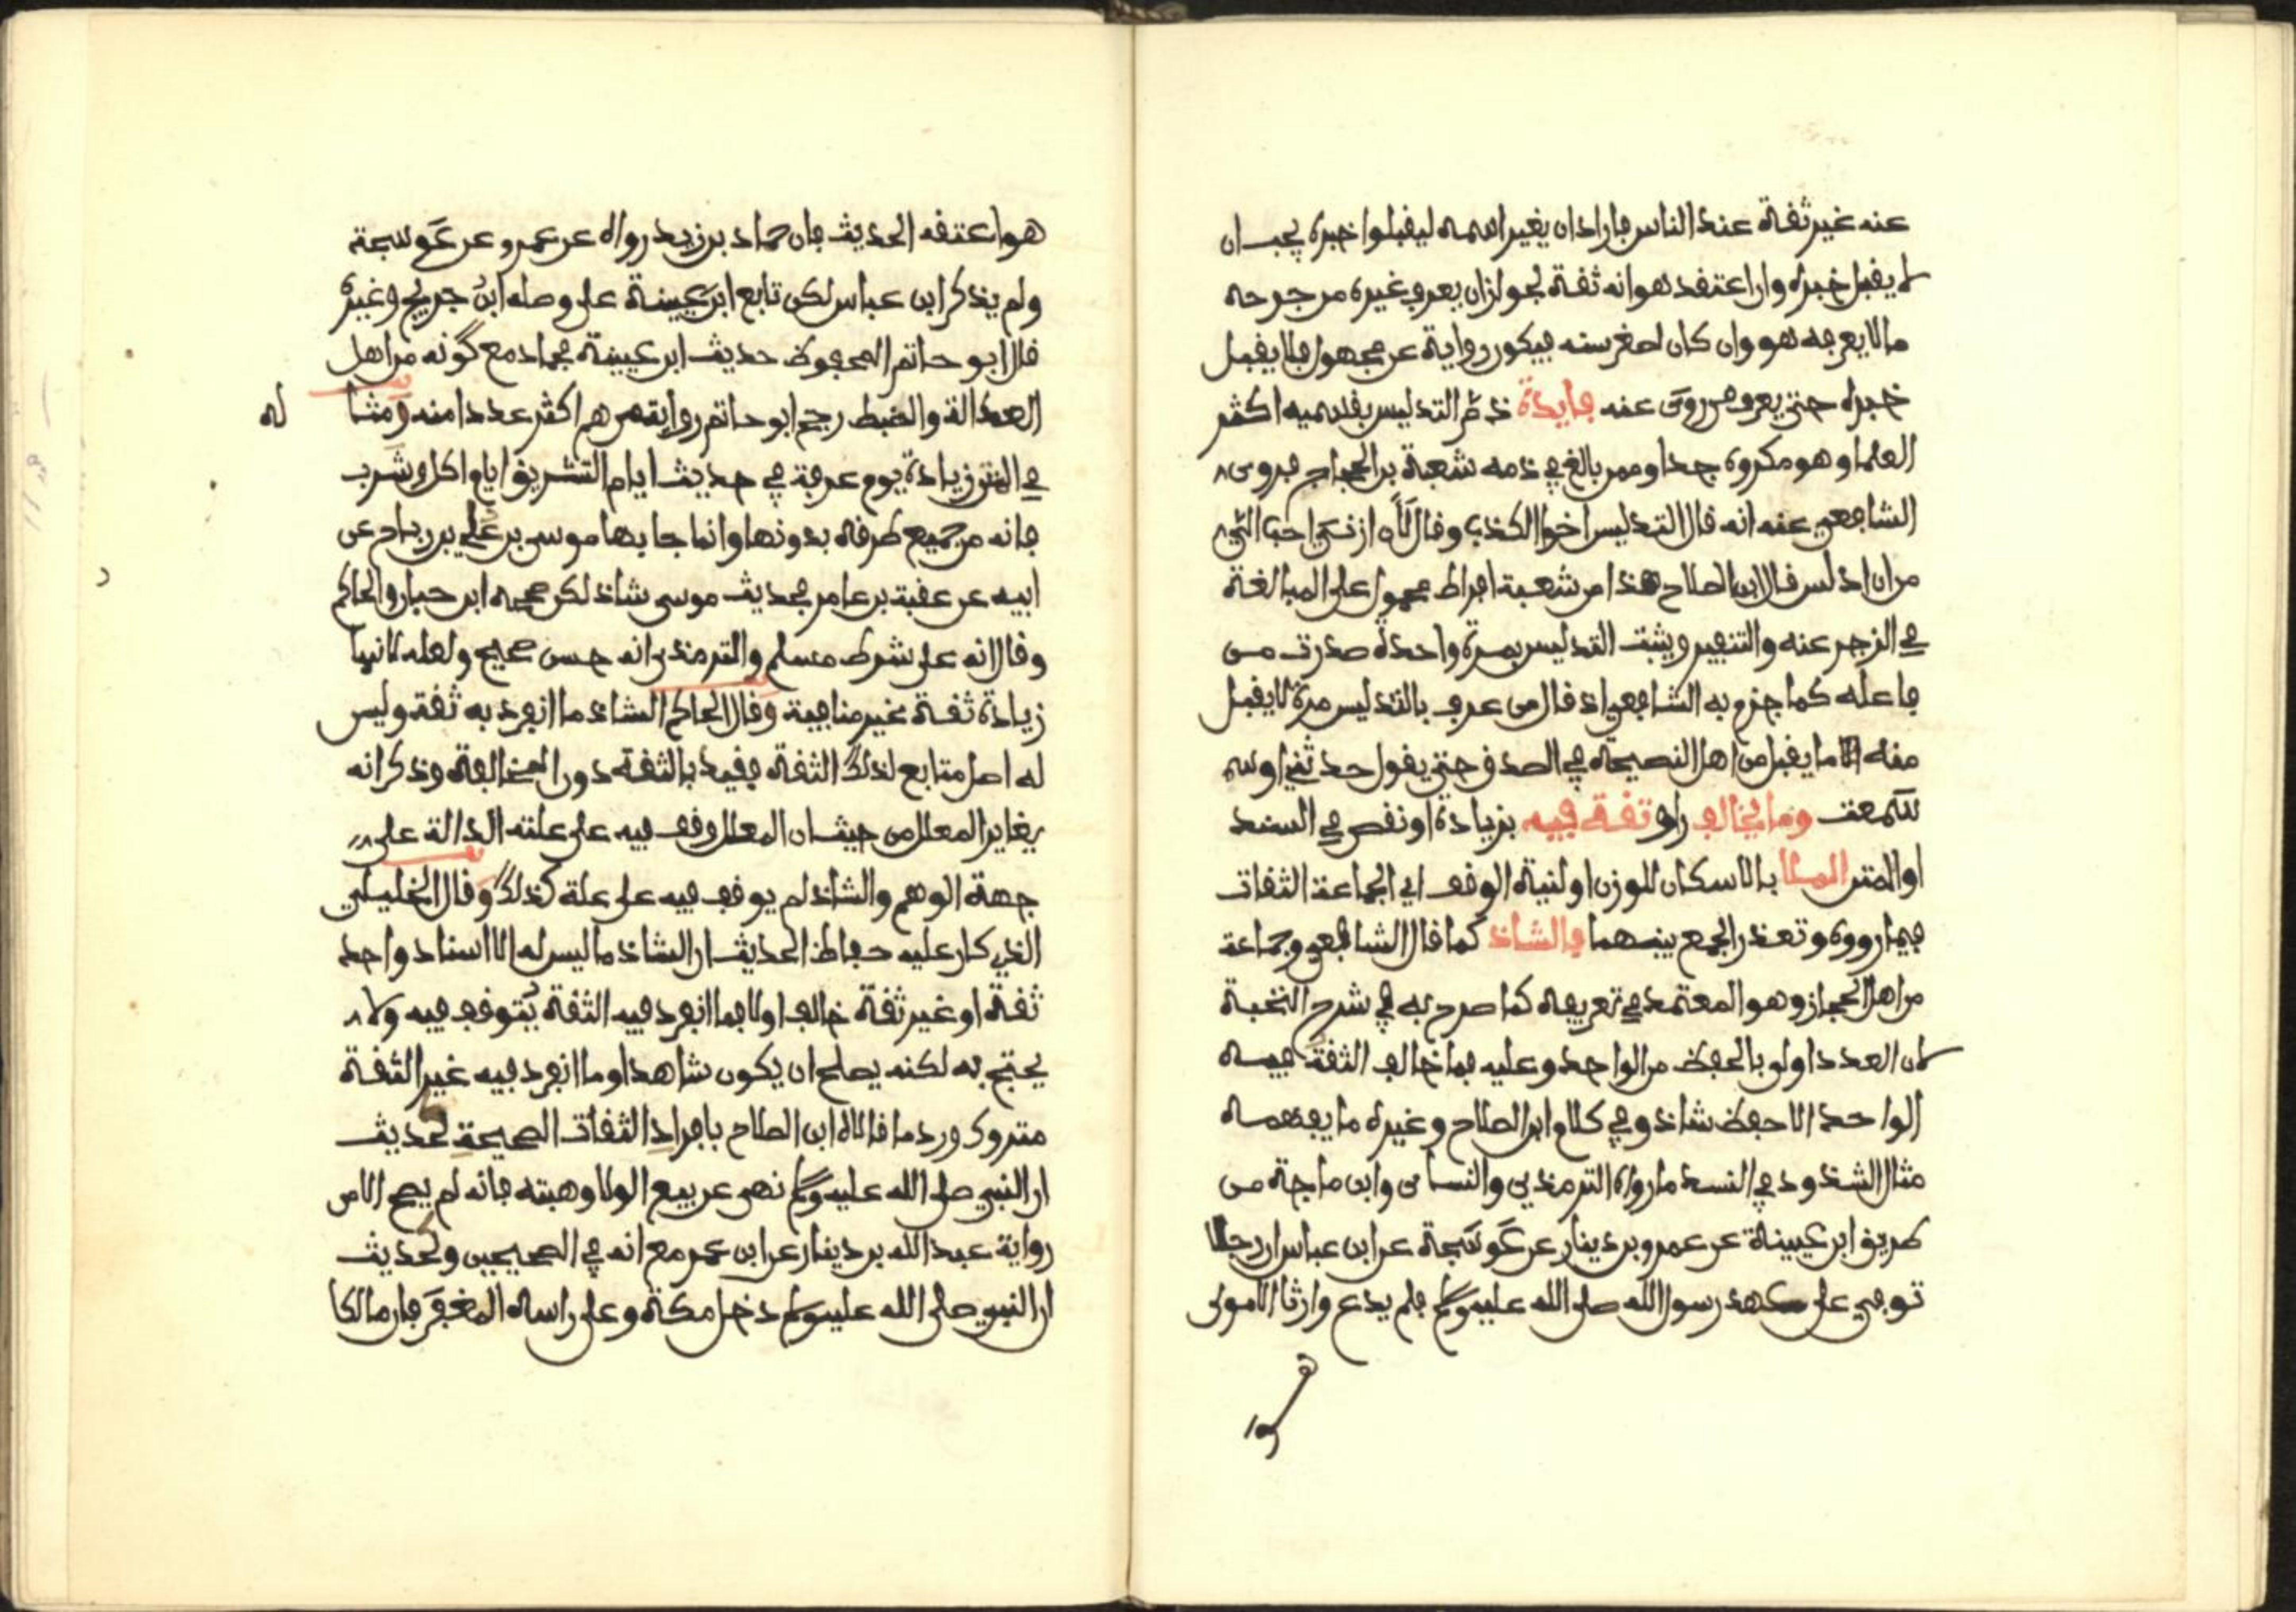 عنه غير ثقة عند الناس فاراد ان يغير اسمه ليقبلوا خبره يجب ان
لا يقبل خبره وان اعتقد هو انه ثقة لجواز ان يعرف غيره من جرحه
مالا يعرفه هو وان كان لصغر سنه فيكون رواية عن مجهول فلا يقبل
خبره حتى يعرف من روى عنه فايدة ذم التدليس بقسميه اكثر
العلما وهو مكروه جدا وممن بالغ في ذمه شعبة بن الحجاج فروى
الشافعي عنه انه قال التدليس اخوا الكذب وقال لأن ازني احب الي
من ان ادلس قال ابن الصلاح هذا من شعبة افراط محمول على المبالغة
في الزجر عنه والتنفير ويثبت التدليس بمرة واحدة صدرت من
فاعله كما جزم به الشافعي اذ قال من عرف بالتدليس مرة لا يقبل
منه الا ما يقبل من اهل النصيحة في الصدق حتى يقول حدثني او سم
سمعت وما يخالف راو ثقة فيه بزيادة او نقص في السند
او المتن الملا بالاسكان للوزن او لنية الوقف اي الجماعة الثقات
فيما رووه وتعذر الجمع بينهما فالشاذ كما قال الشافعي وجماعة
من اهل الحجاز وهو المعتمد في تعريفه كما صرح به في شرح النخبة
لان العدد اولى بالحفظ من الواحد وعليه فما خالف الثقة فيه
الواحد الاحفظ شاذ وفي كلام ابن الصلاح وغيره ما يفهمه
مثال الشذوذ في السند ما رواه الترمذي والنساى وابن ماجة من
طريق ابن عيينة عن عمرو بن دينار عن عوسجة عن ابن عباس ان رجلا
توفي على عهد رسول الله صلى الله عليه وسلم فلم يدع وارثا الا مولى
هو اعتقه الحديث فان حماد بن زيد رواه عن عمرو عن عوسجة
ولم يذكر ابن عباس لكن تابع ابن عيينة على وصله ابن جريج وغيره
قال ابو حاتم المحفوظ حديث ابن عيينة فحماد مع كونه من اهل
العدالة والضبط رجح ابو حاتم رواية من هم اكثر عددا منه ومثا له
في المتن زيادة يوم عرفة في حديث ايام التشريق ايام اكل وشرب
فانه من جميع طرقه بدونها وانما جا بها موسى بن علي بن رباح عن
ابيه عن عقبة بن عامر فحديث موسى شاذ لكن صححه ابن حبان والحاكم
وقال انه على شرط مسلم والترمذي انه حسن صحيح ولعله لانها
زيادة ثقة غير منافية وقال الحاكم الشاذ ما انفرد به ثقة وليس
له اصل متابع لذلك الثقة فقيد بالثقة دون المخالفة وذكر انه
يغاير المعلل من حيث ان المعلل وقف فيه على علته الدالة على
جهة الوهم والشاذ لم يوقف فيه على علة كذلك وقال الخليلي
الذي كان عليه حفاظ الحديث ان الشاذ ما ليس له الا اسناد واحد
ثقة او غير ثقة خالف اولا فما انفرد فيه الثقة يتوقف فيه ولا
يحتج به لكنه يصلح ان يكون شاهدا وما انفرد فيه غير الثقة
متروك ورد ما قالاه ابن الصلاح بافراد الثقات الصحيحة كحديث
ان النبي صلى الله عليه وسلم نهى عن بيع الولا وهبته فانه لم يصح الا من
رواية عبد الله بن دينار عن ابن عمر مع انه في الصحيحين وكحديث
ان النبي صلى الله عليه وسلم دخل مكة وعلى راسه المغفر فان مالكا